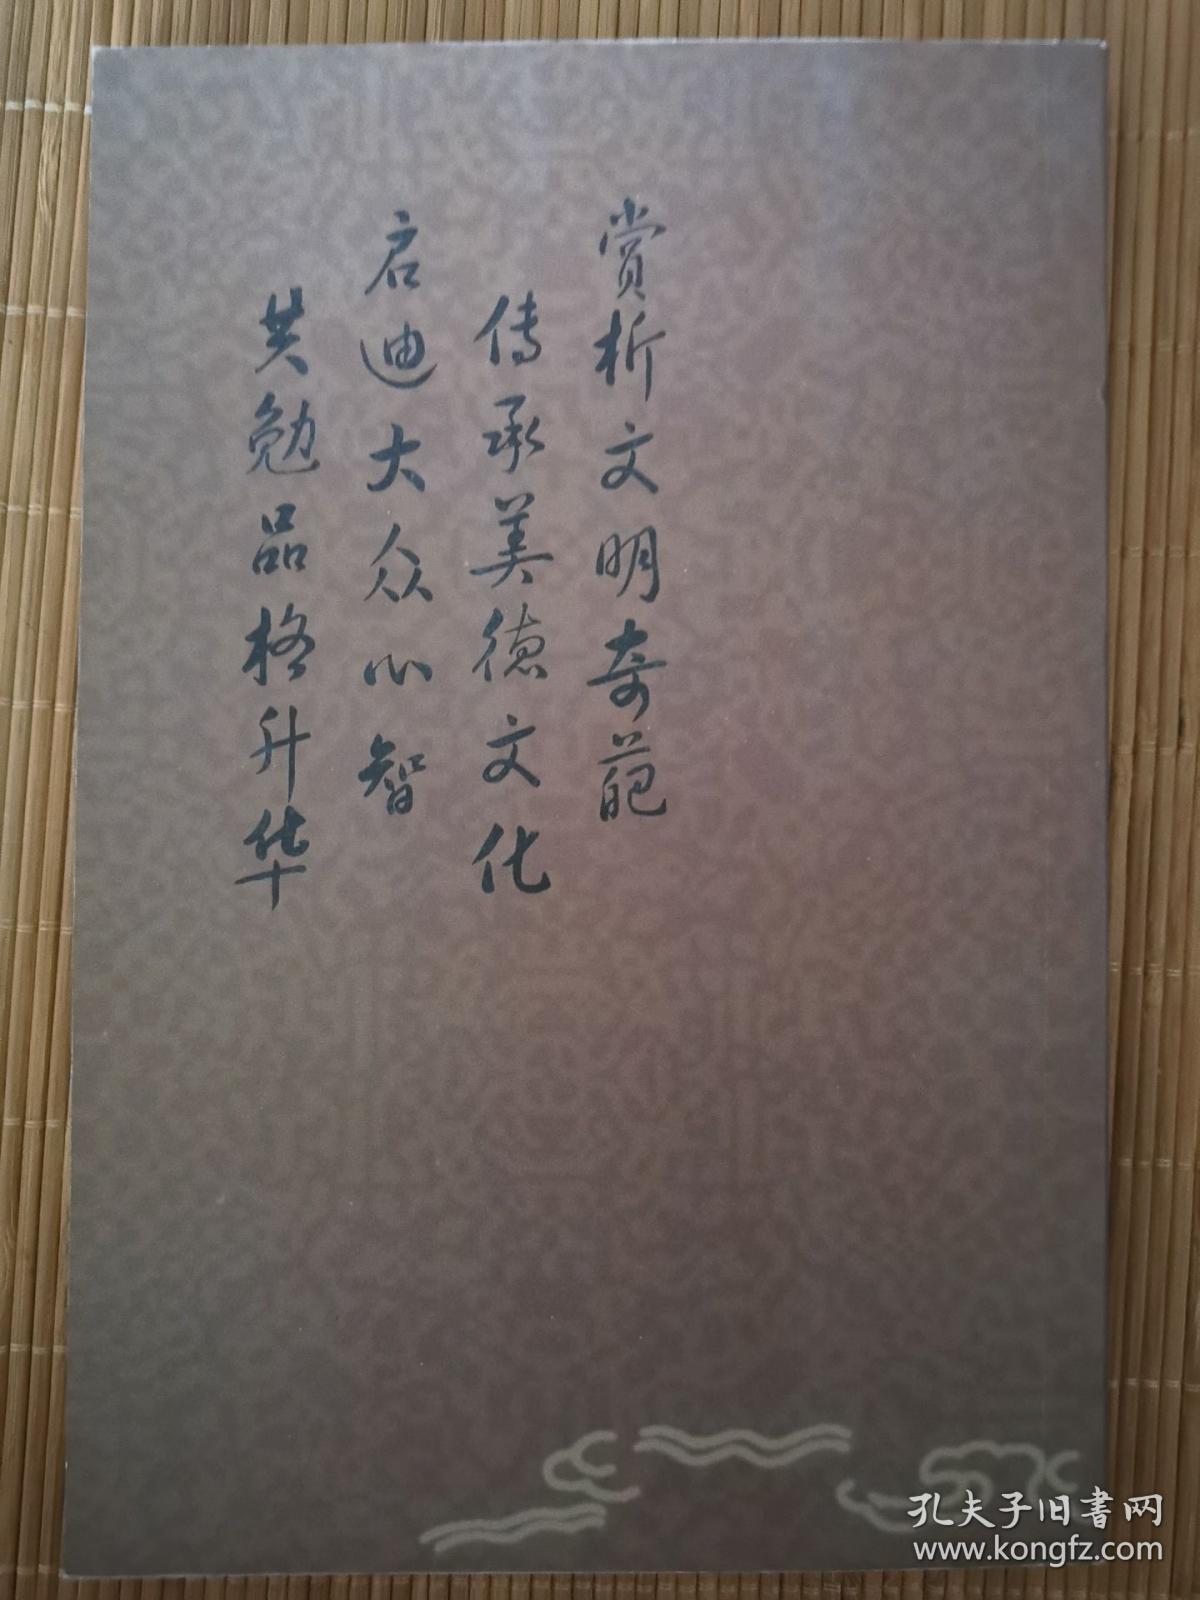 赏析文明奇葩
传承美德文化
启迪大众心智
共勉品格升华
孔夫子旧书网
www.kongfz.com